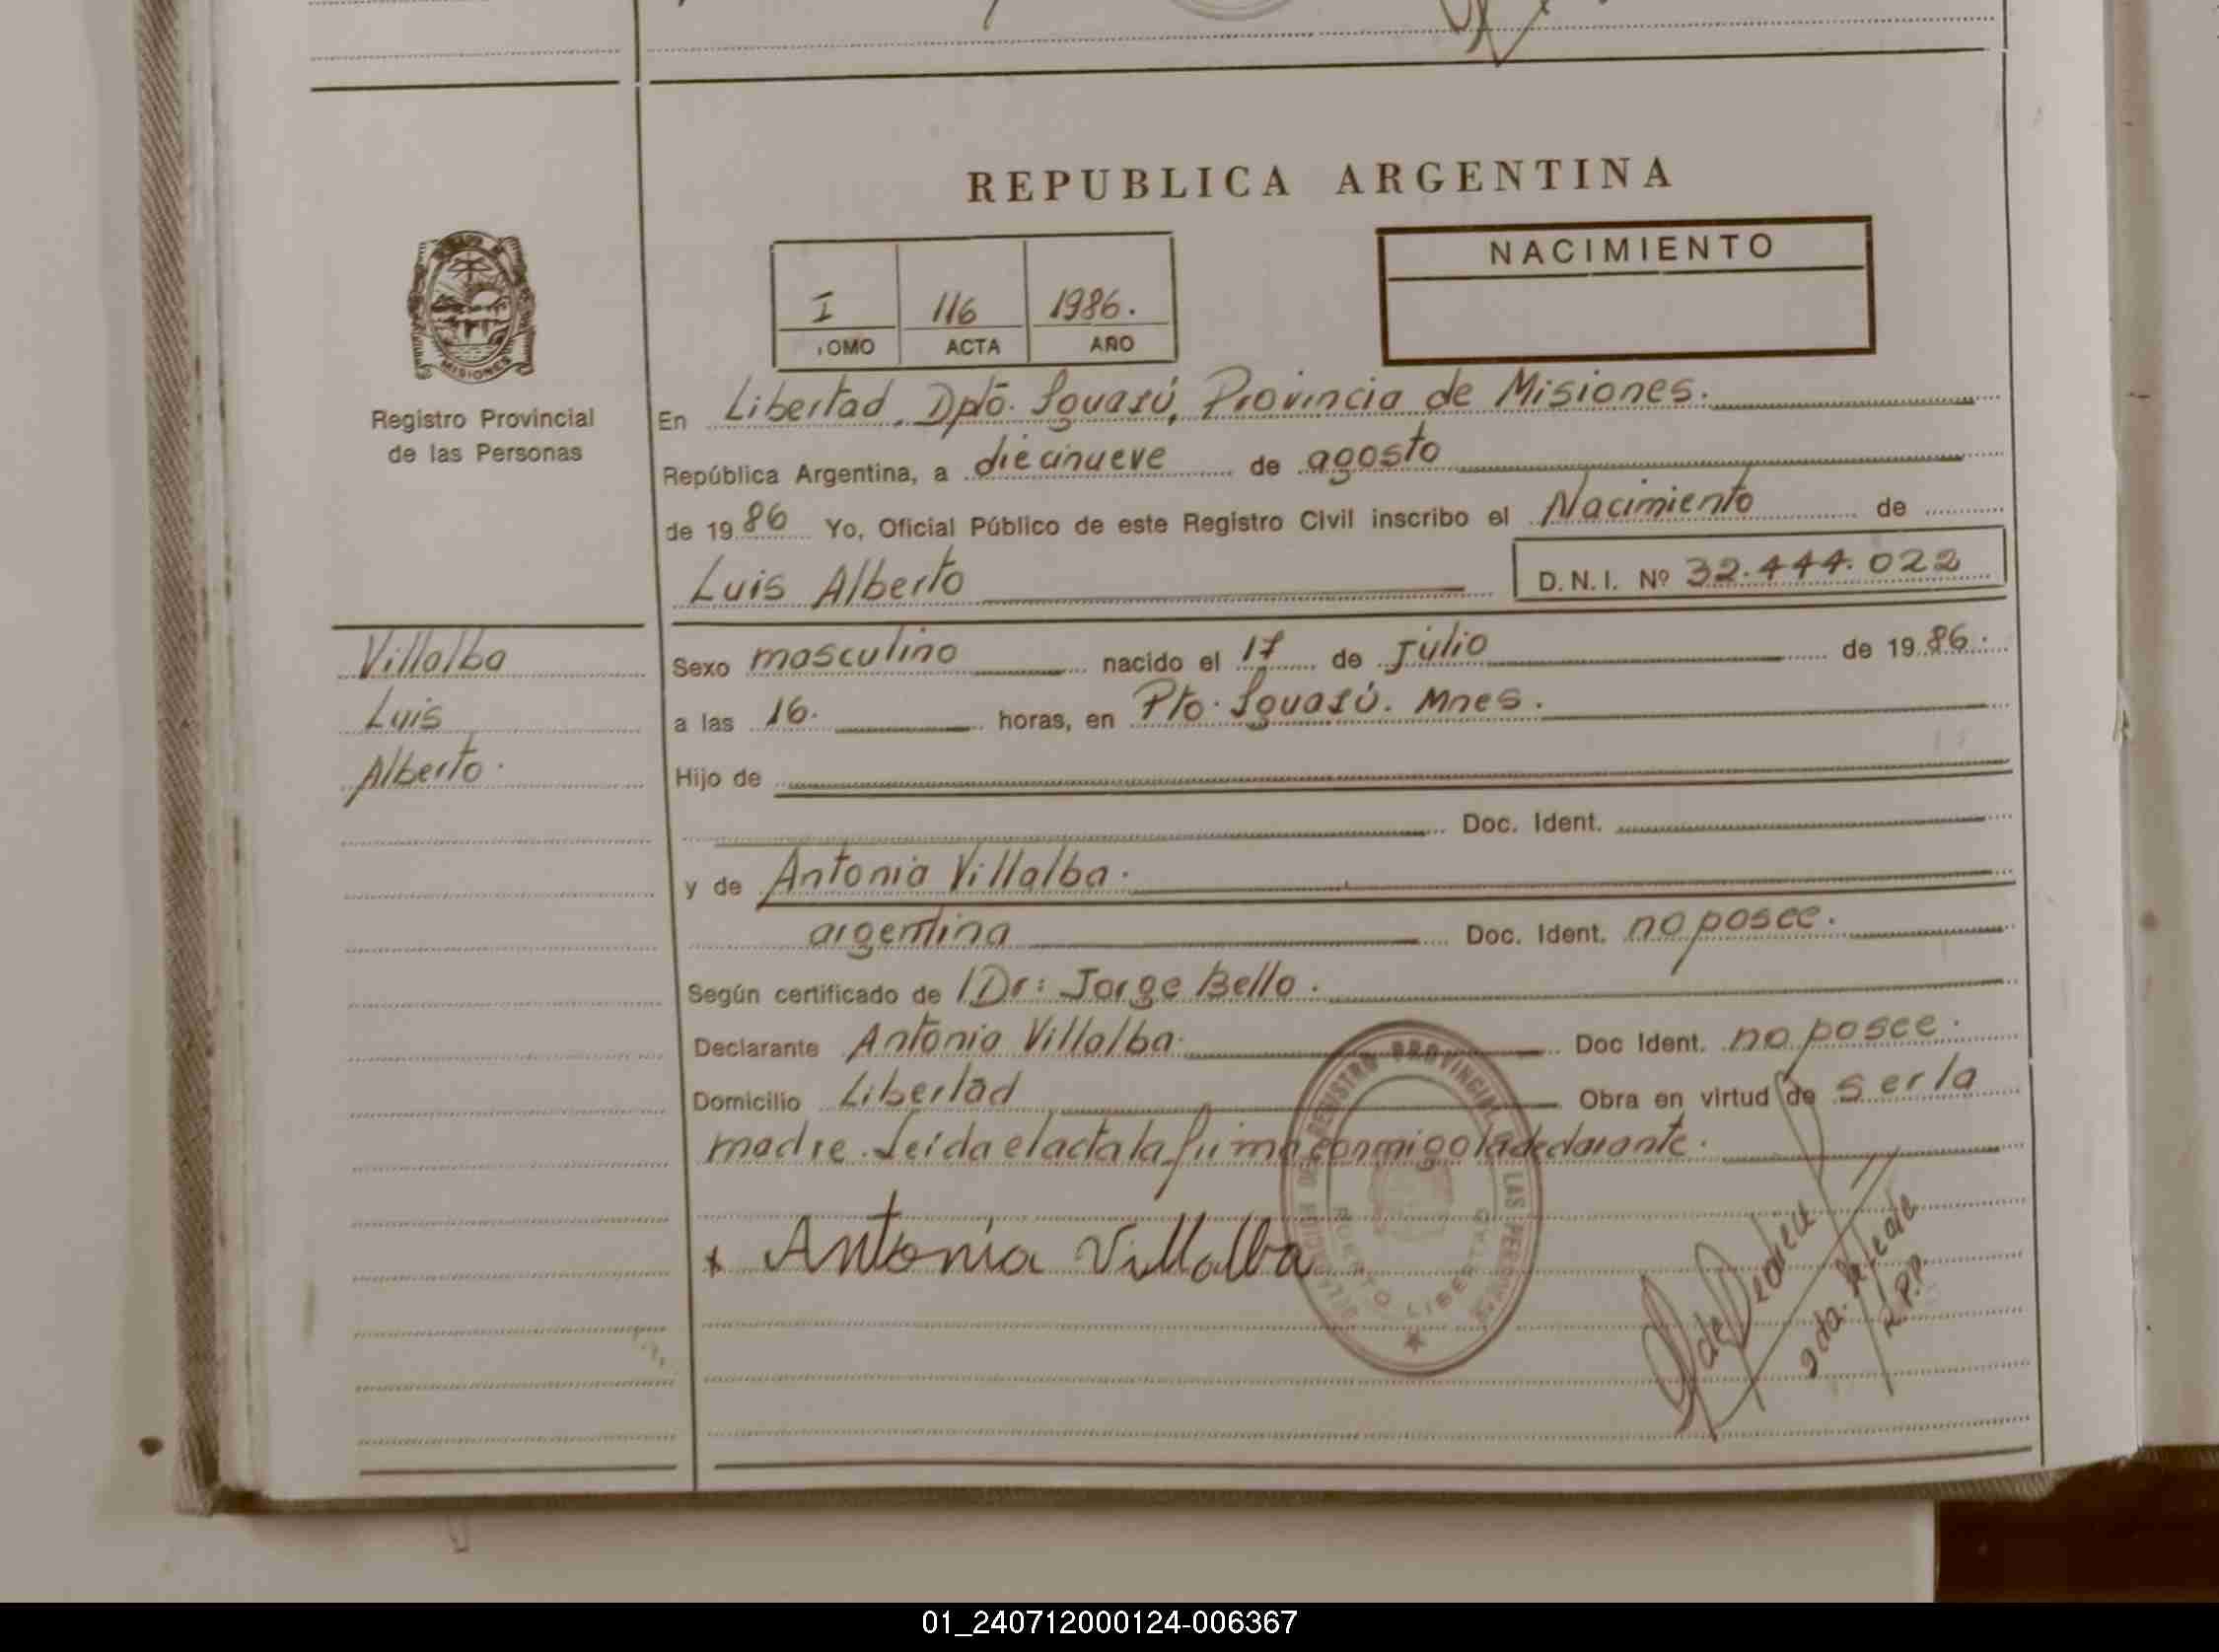 REPUBLICA ARGENTINA
NACIMIENTO
I 116 1986.
OMO ACTA AÑO
MISIONES
Registro Provincial
de las Personas
En Libertad, Dptō. Iguazú, Provincia de Misiones.
República Argentina, a diecinueve de agosto
de 1986 Yo, Oficial Público de este Registro Civil inscribo el Nacimiento de
Luis Alberto D.N.I. Nº 32.444.022
Villalba
Luis
Alberto.
Sexo masculino nacido el 17 de julio de 1986.
a las 16. horas, en Pto. Iguazú. Mnes.
Hijo de
Doc. Ident.
y de Antonia Villalba.
argentina Doc. Ident. no posee.
Según certificado de Dr: Jorge Bello.
Declarante Antonia Villalba. Doc Ident. no posee.
Domicilio Libertad Obra en virtud de ser la
madre. Leída el acta la firma conmigo la declarante.
x Antonia Villalba
REGISTRO PROVINCIAL DE LAS PERSONAS
PUERTO LIBERTAD
R.P.P.
01_240712000124-006367